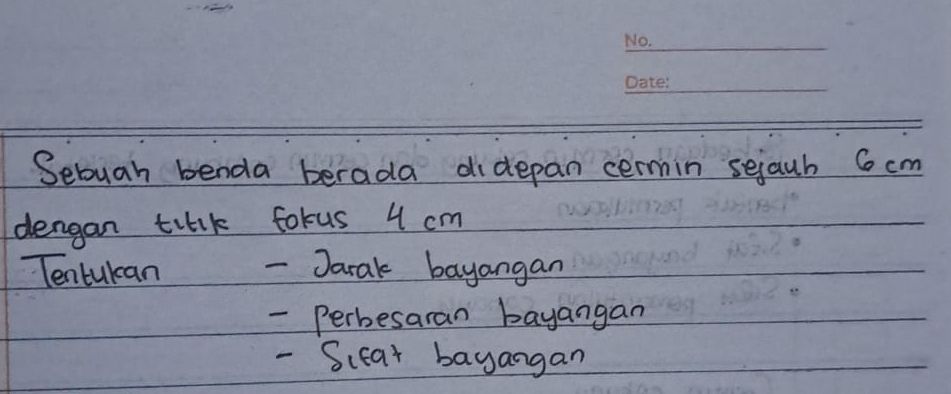 No.
Date:
Sebuah benda berada didepan cermin sejauh 6 cm
dengan titik fokus 4 cm
Tentukan - Jarak bayangan
- Perbesaran bayangan
- Sifat bayangan